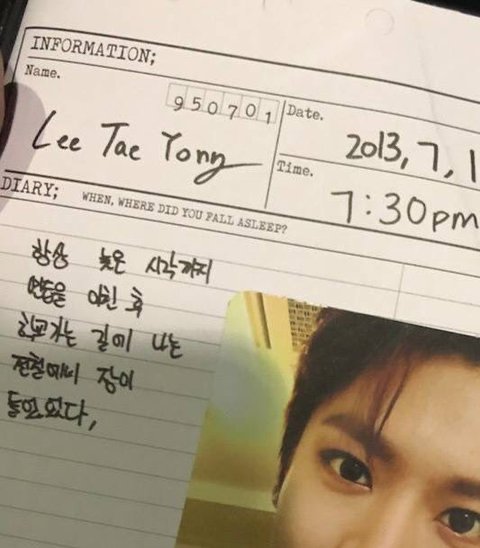 INFORMATION;
Name.
950701
Date.
Lee Tae Yong
2013, 7, 1
Time.
7:30pm
DIARY; WHEN, WHERE DID YOU FALL ASLEEP?
항상 늦은 시각까지
연습을 마친 후
하고가는 길에 나는
전철에서 잠이
들어 있다,